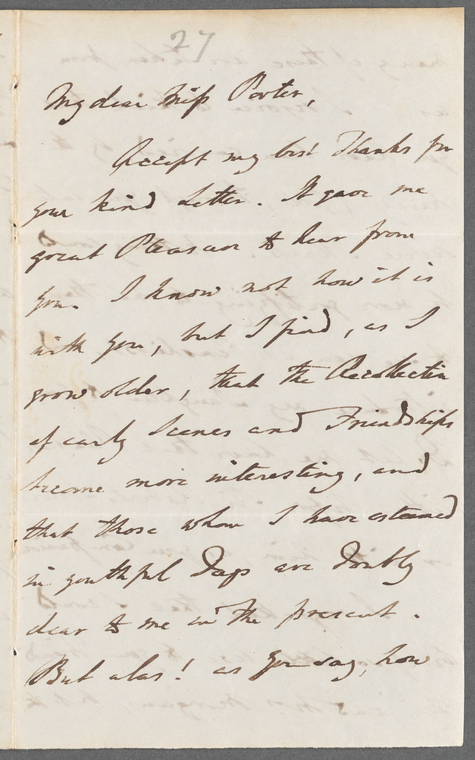 27
My dear Miss Porter,
Accept my best Thanks for
your kind Letter. It gave me
great Pleasure to hear from
you. I know not how it is
with you, but I find, as I
grow older, that the Recollection
of early Scenes and Friendships
become more interesting, and
that those whom I have esteemed
in youthful Days are doubly
dear to me in the present.
But alas! as you say, how